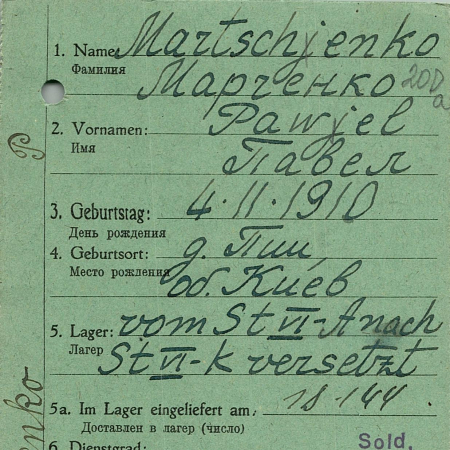 1. Name: Martschjenko
Фамилия Марченко 200 a
2. Vornamen: Pawjel
Имя Павел
3. Geburtstag: 4.11.1910
День рождения
4. Geburtsort: д. Пии,
Место рождения об. Киев
5. Lager: vom St VI-A nach
Лагер St VI-K versetzt
5a. Im Lager eingeliefert am: 18.1.44.
Доставлен в лагер (число)
6. Dienstgrad: Sold.